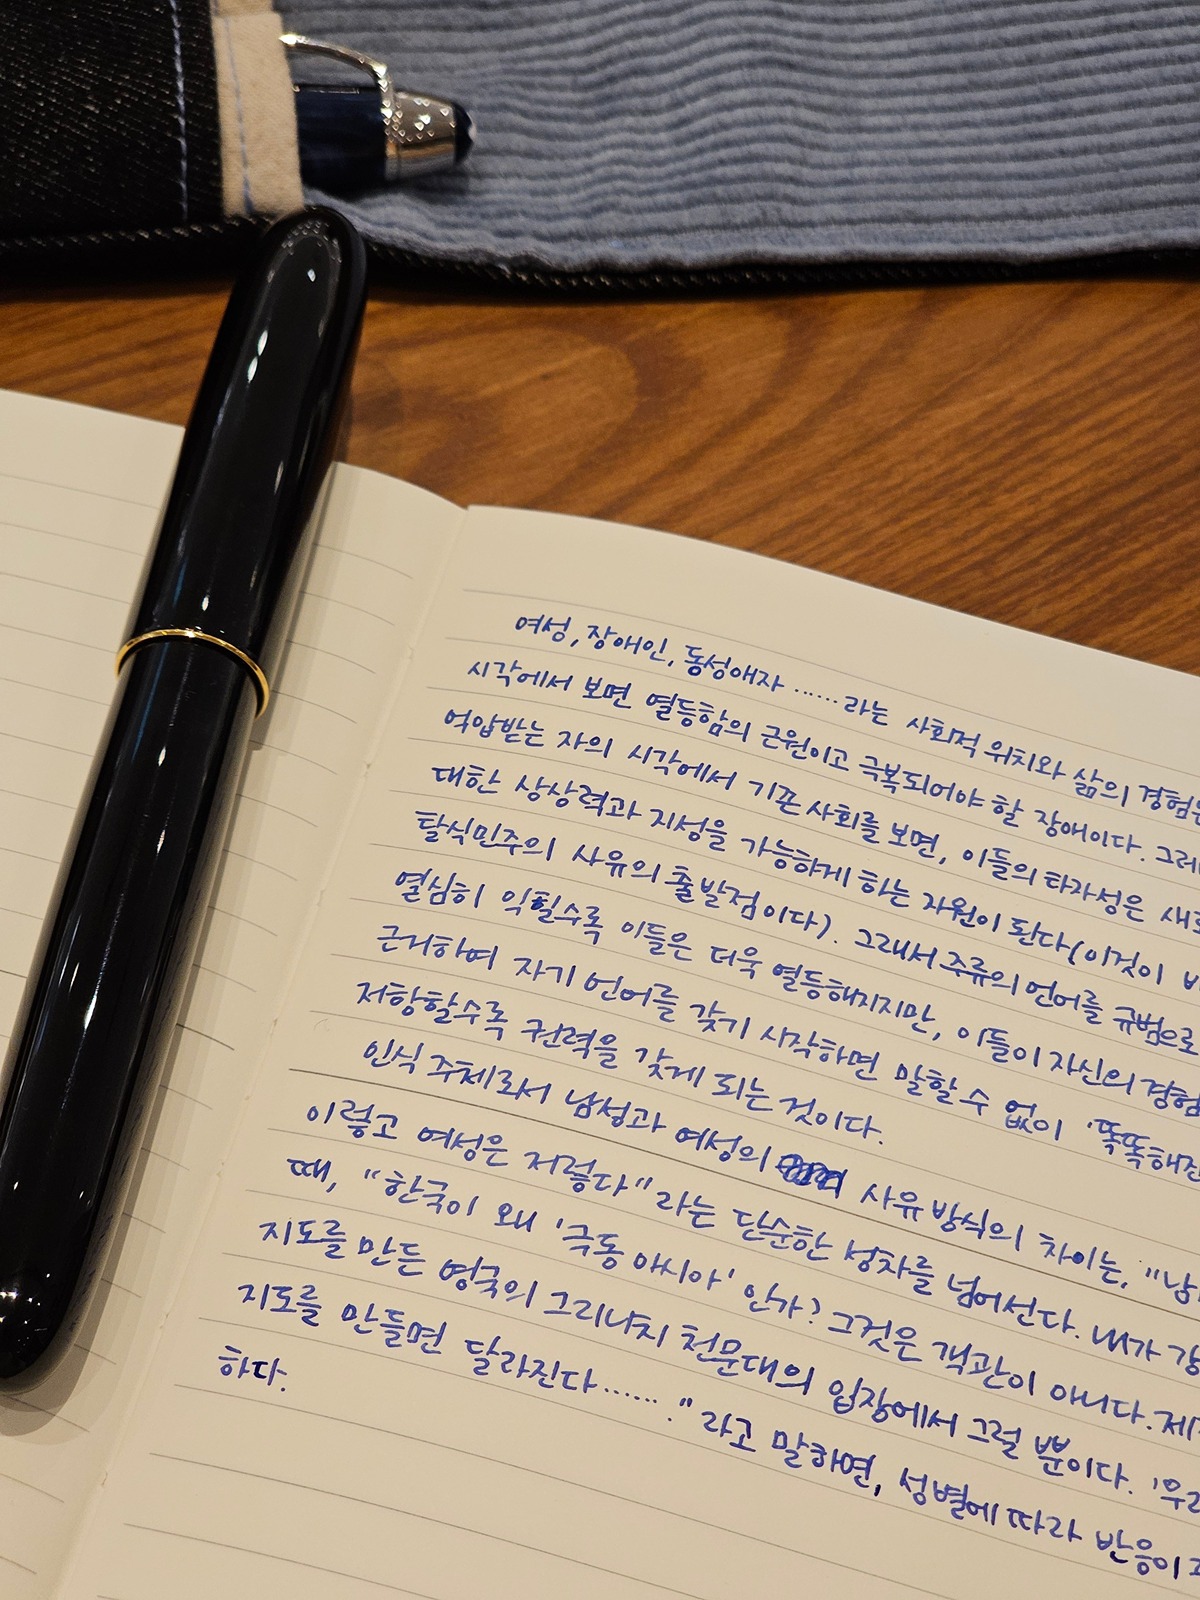 여성, 장애인, 동성애자 ...... 라는 사회적 위치와 삶의 경험은
시각에서 보면 열등함의 근원이고 극복되어야 할 장애이다. 그러
억압받는 자의 시각에서 기존 사회를 보면, 이들의 타자성은 새로
대한 상상력과 지성을 가능하게 하는 자원이 된다(이것이 바
탈식민주의 사유의 출발점이다). 그래서 주류의 언어를 규범으로
열심히 익힐수록 이들은 더욱 열등해지지만, 이들이 자신의 경험
근거하여 자기 언어를 갖기 시작하면 말할 수 없이 '똑똑해진
저항할수록 권력을 갖게 되는 것이다.
인식 주체로서 남성과 여성의 사유 방식의 차이는, "남
이렇고 여성은 저렇다"라는 단순한 성차를 넘어선다. 내가 강
때, "한국이 왜 '극동 아시아' 인가? 그것은 객관이 아니다. 제
지도를 만든 영국의 그리니치 천문대의 입장에서 그럴 뿐이다. '우리
지도를 만들면 달라진다 ...... ." 라고 말하면, 성별에 따라 반응이
하다.